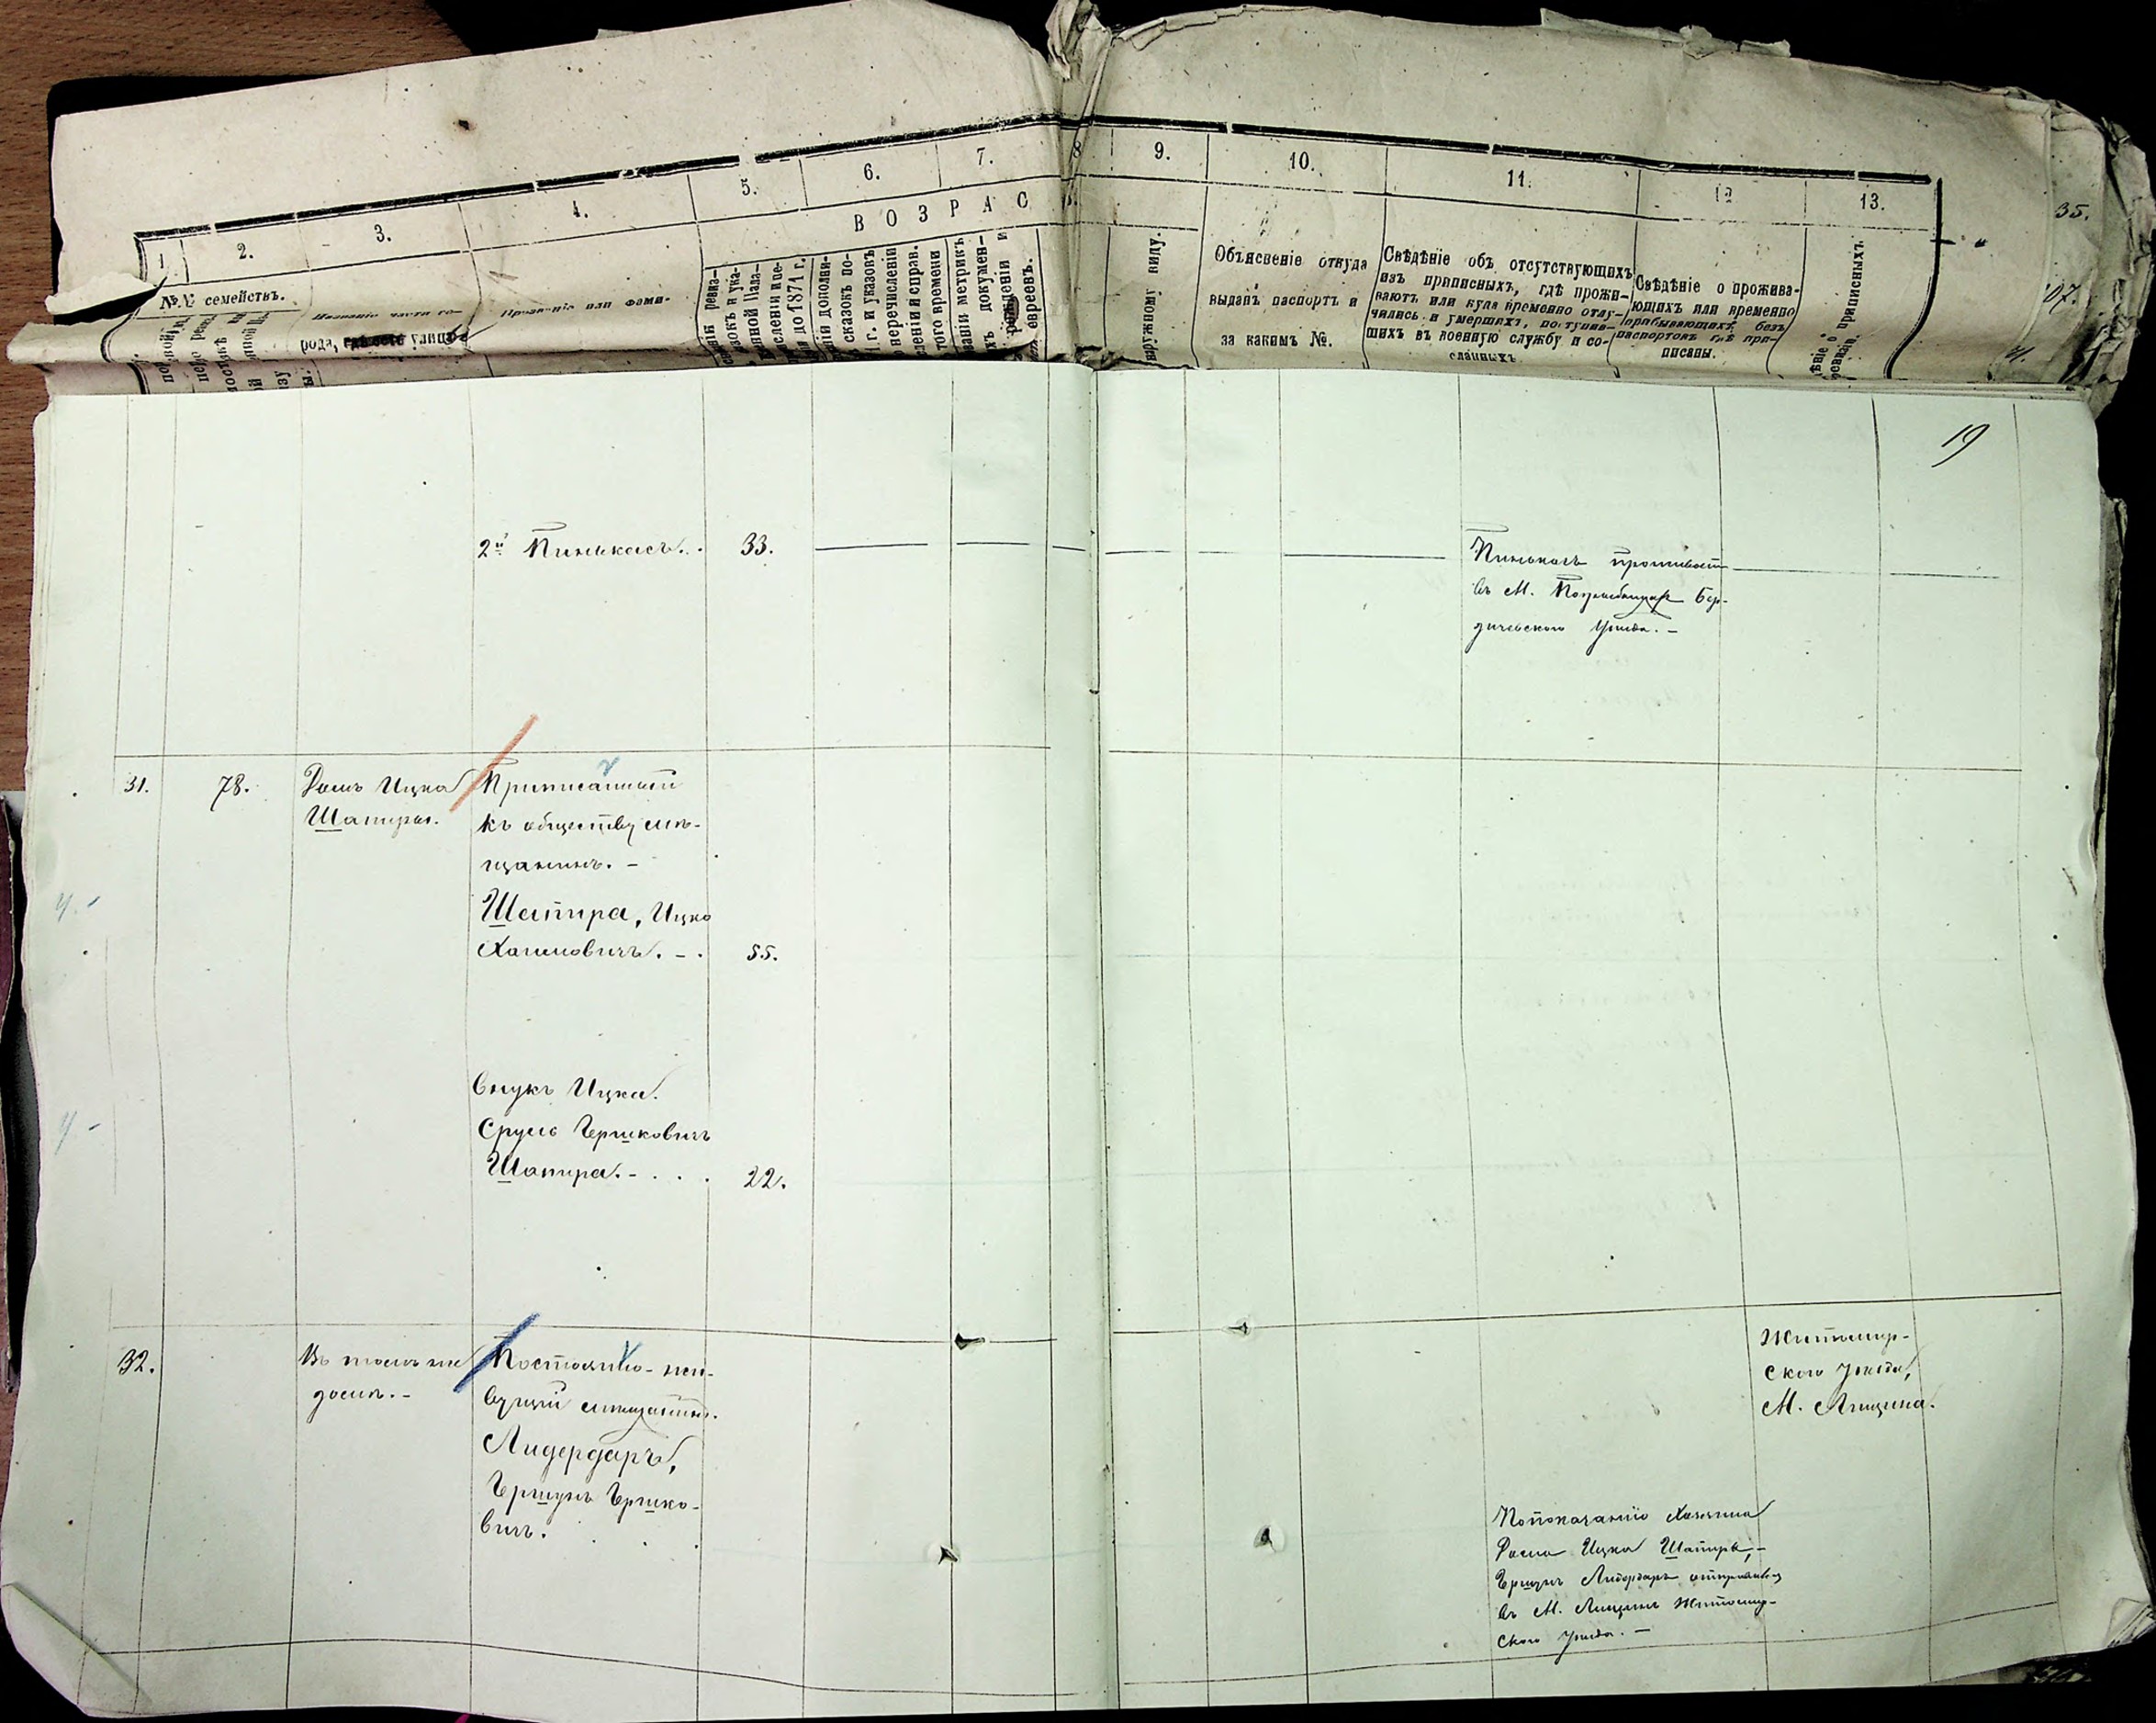 1.
2.
3.
4.
5.
6.
7.
8
9.
10.
11.
12
13.
35.
ВОЗРАС
№№ семействъ.
рода, улицъ
Прозваніе или фами-
наружному виду.
Объясненіе откуда
выданъ паспортъ и
за какимъ №.
Свѣдѣніе объ отсутствующихъ
изъ приписныхъ, гдѣ прожи-
ваютъ или куда временно отлу-
чились и умершихъ, поступив-
шихъ въ военную службу и со-
сланныхъ.
Свѣдѣніе о прожива-
ющихъ или временно
прибывающихъ безъ
паспортовъ гдѣ при-
писаны.
приписныхъ.
107.
19
2й Пинькасъ. .
33.
Пинькасъ проживаетъ
въ М. Бер-
дичевского Уѣзда. –
31.
78.
Домъ Ицка
Шапиры.
Приписанный
къ обществу мѣ-
щанинъ. –
Шапира, Ицко
Хаимовичъ. – .
55.
Внукъ Ицка.
Сруль Гершковичъ
Шапира. – . . .
22.
32.
Въ томъ же
домѣ. –
Постоянно-жи-
вущій мѣщанинъ.
Лидердаръ,
Гершунъ Гершко-
вичъ.
Житомир-
ского Уѣзда,
М. Лещина.
По показанію Хозяина
Дома Ицка Шапиры, –
Гершунъ Лидердаръ отправился
въ М. Лещинъ Житомир-
ского Уѣзда. –